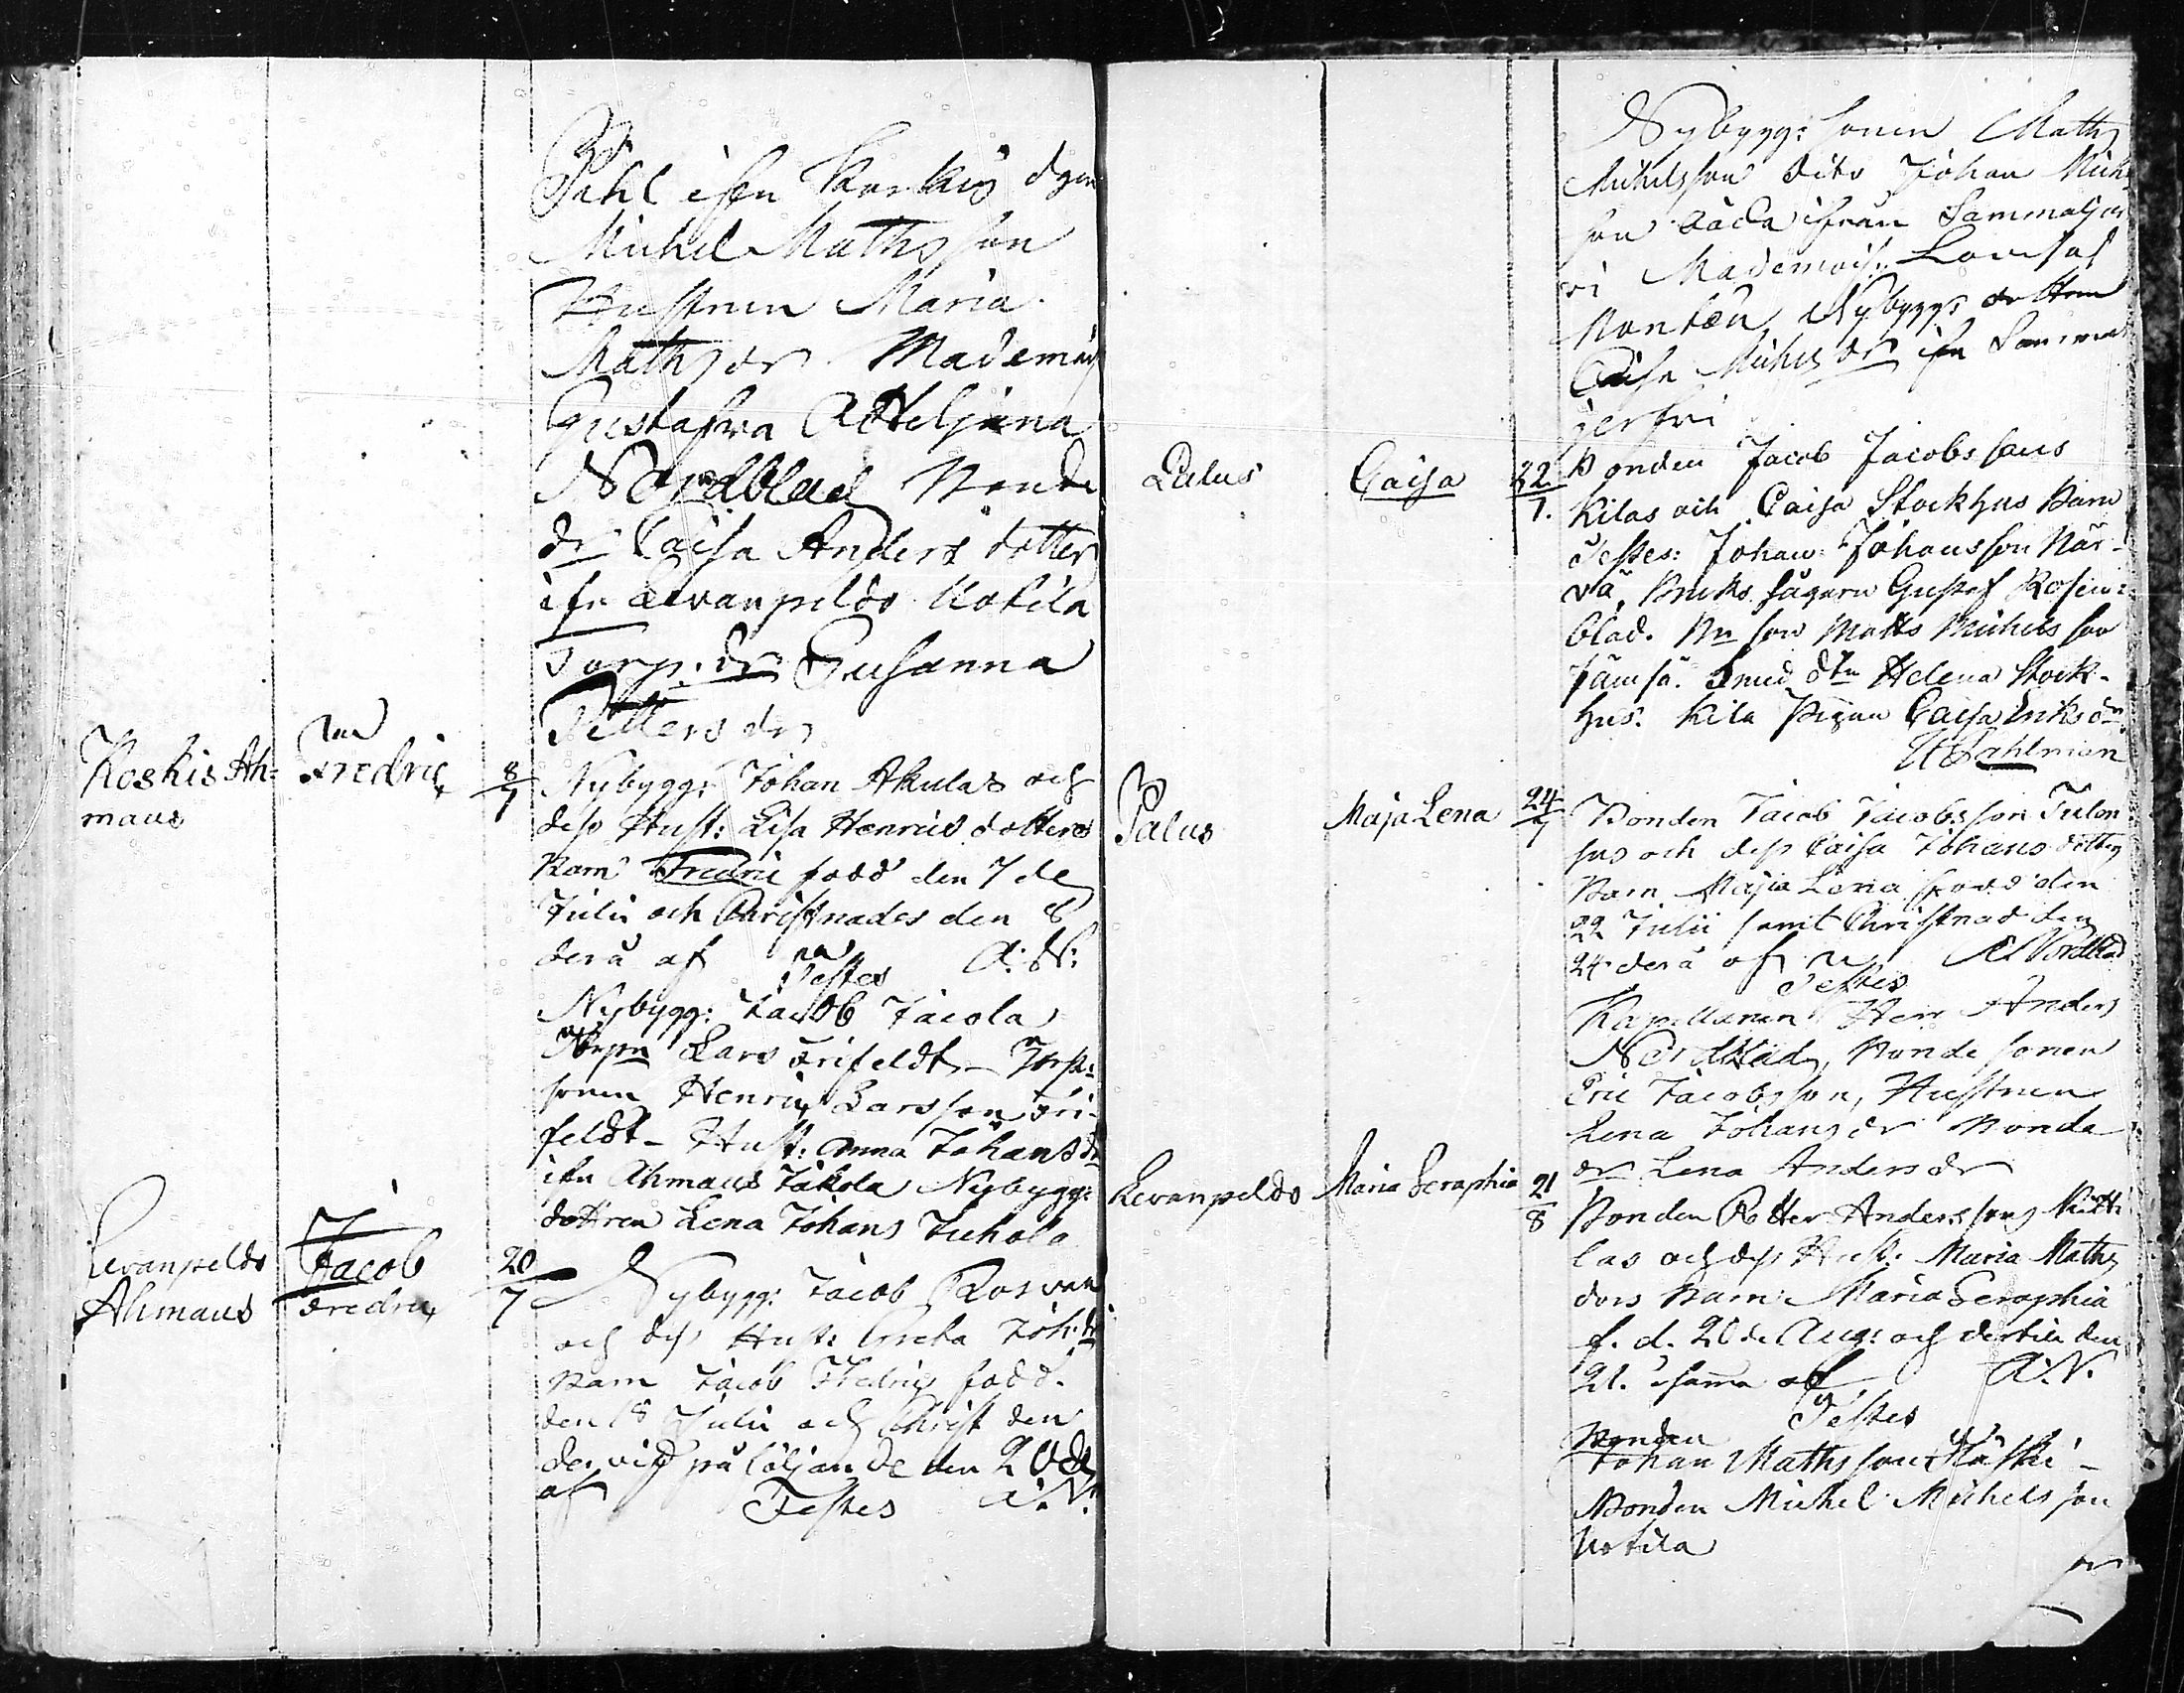 Påhl ifrn Korkis dgen
Michel Mathsson
Hustrun Maria
Mathsdr Mademois
Gustafwa Atteljana
Nordblad Bonde
dr Caisa Anders dotter
ifrn Lewanpeldo Uotila
Torp. dr Susanna
Petters dr
Koskis Ah=
maus
Fredric
8/7
Nybygg: Johan Akulas och
dess Hust: Lisa Henrics dotters
Barn Fredric född den 7 de
Julii och Christnades den 8
derå af A: N:
Testes
Nybygg: Jacob Jacola
Lars Frifeldt - Torp:
sonen Henric Larsson Fri-
feldt - Hust: Anna Johans dr
ifrn Ahmaus Jakola Nybygg:
dottren Lena Johans Juhola
Levanpeldo
Ahmaus
Jacob
Fredric
20/7
Nybygg: Jacob Rosvan
och dess Hust: Greta Joh: dr
Barn Jacob Fredric född
den 18 Julii och Christ den
der vid på följande den 20 de
af A: N:
Testes
Nybygg: sonen Maths
Michelsson dito Johan Mich
son båda ifrån Sammaljer
vi Mademois: Lovisa
Nybygg: dottren
Caisa Michels dr ifrn Sammal
jerfvi
Palus
Caisa
22/7.
Bonden Jacob Jacobssons
Kilas och Caisa Stockhus Barn
Testes: Johan Johansson När-
vä, Bruks sågaren Gustaf Rosen=
blad. Bn son Matts Michels son
Jämsä. Smed dtn Helena Stock-
hus. Kila Pigan Caisa Eriks dr
Sahlman
Palus
Maja Lena
24/7
Bonden Jacob Jacobsson Tulon
sus och dess Caisa Johans dotters
Barn Maja Lena född den
22 Julii samt Christnad den
24 derå af A Nordblad
Testes
Kapellanen Herr Anders
Nordblad, Bonde sonen
Eric Jacobsson, Hustrun
Lena Johans dr Bonde
dr Lena Anders dr
Levanpeldo
Maria Seraphia
21/8
Bonden Petter Anderssons
las och dess Hust: Maria Maths
dors Barn: Maria Seraphia
f. d. 20 de Aug: och dertill den
21. samma af A: N.
Testes
Bonden
Johan Mathsson
Bonden Michel Michelsson
Uotila